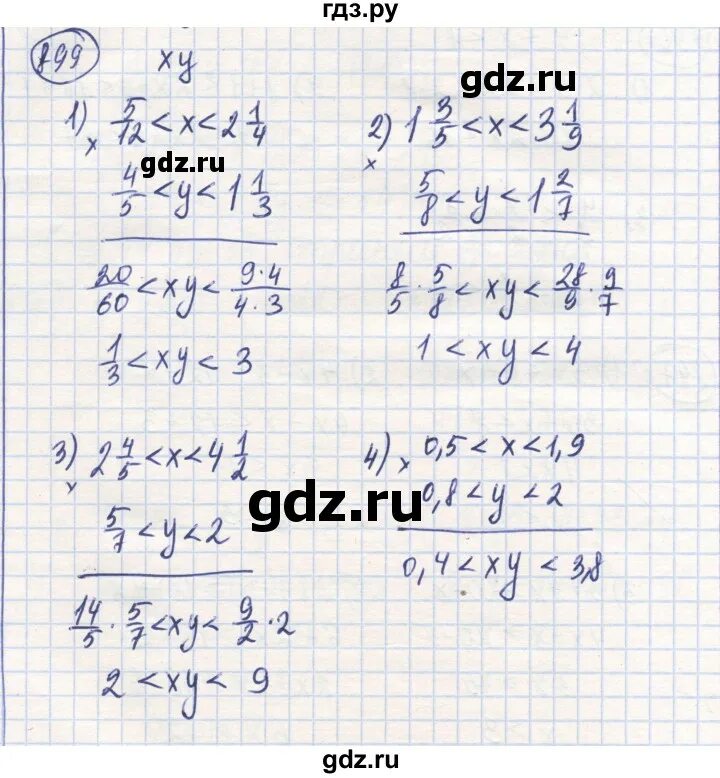 гдз.ру
899 xy
gdz.ru
1) 5/12 < x < 2 1/4
x
gdz.ru
4/5 < y < 1 1/3
20/60 < xy < 9·4/4·3
1/3 < xy < 3
2) 1 3/5 < x < 3 1/9
x
5/8 < y < 1 2/7
8/5 · 5/8 < xy < 28/9 · 9/7
1 < xy < 4
3) 2 4/5 < x < 4 1/2
x
5/7 < y < 2
14/5 · 5/7 < xy < 9/2 · 2
2 < xy < 9
4) 0,5 < x < 1,9
x
0,8 < y < 2
0,4 < xy < 3,8
gdz.ru
gdz.ru